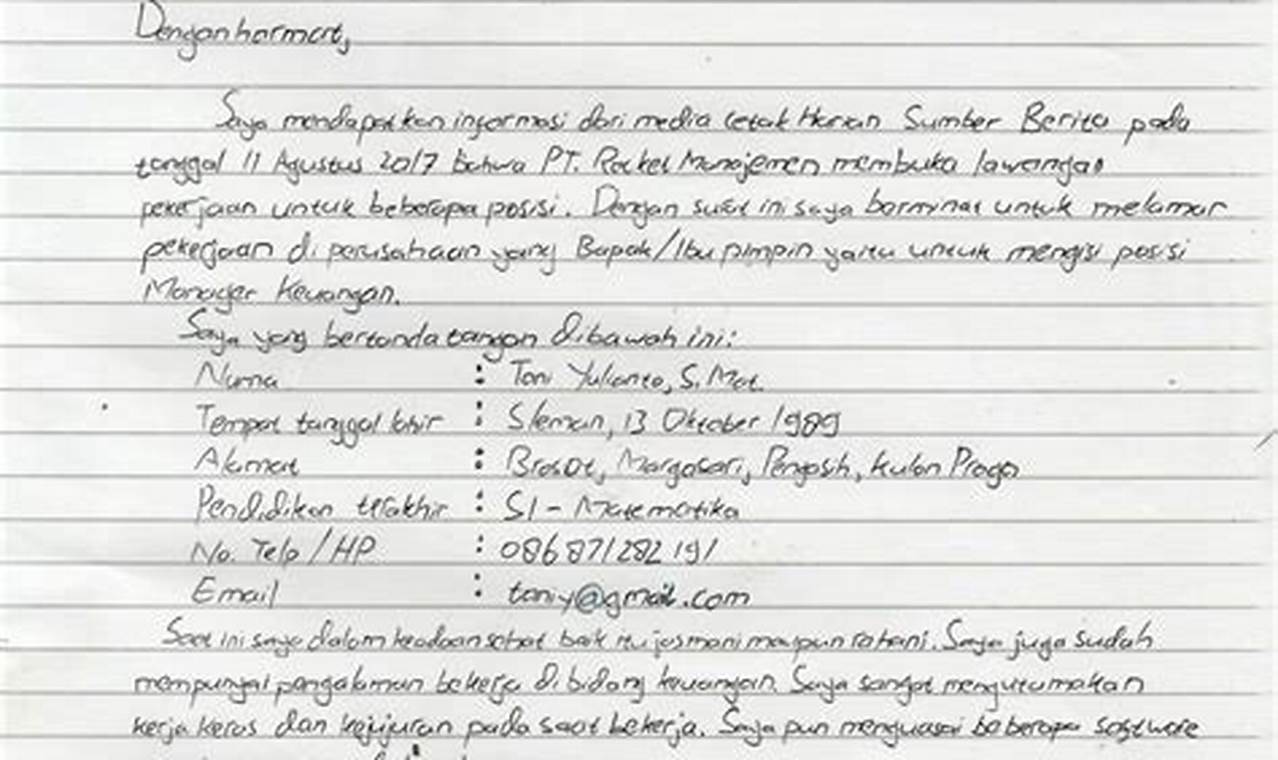 Dengan hormat,
Saya mendapatkan informasi dari media cetak Harian Sumber Berita pada
tanggal 11 Agustus 2017 bahwa PT. Rocket Manajemen membuka lowongan
pekerjaan untuk beberapa posisi. Dengan surat ini saya berminat untuk melamar
pekerjaan di perusahaan yang Bapak/Ibu pimpin yaitu untuk mengisi posisi
Manager Keuangan.
Saya yang bertanda tangan dibawah ini:
Nama : Toni Yulianto, S.Mat.
Tempat tanggal lahir : Sleman, 13 Oktober 1989
Alamat : Brosot, Margosari, Pengasih, Kulon Progo
Pendidikan terakhir : S1 - Matematika
No. Telp / HP : 086 871 282 191
Email : toniy@gmail.com
Saat ini saya dalam keadaan sehat baik itu jasmani maupun rohani. Saya juga sudah
mempunyai pengalaman bekerja di bidang keuangan. Saya sangat mengutamakan
kerja keras dan kejujuran pada saat bekerja. Saya pun menguasai beberapa software